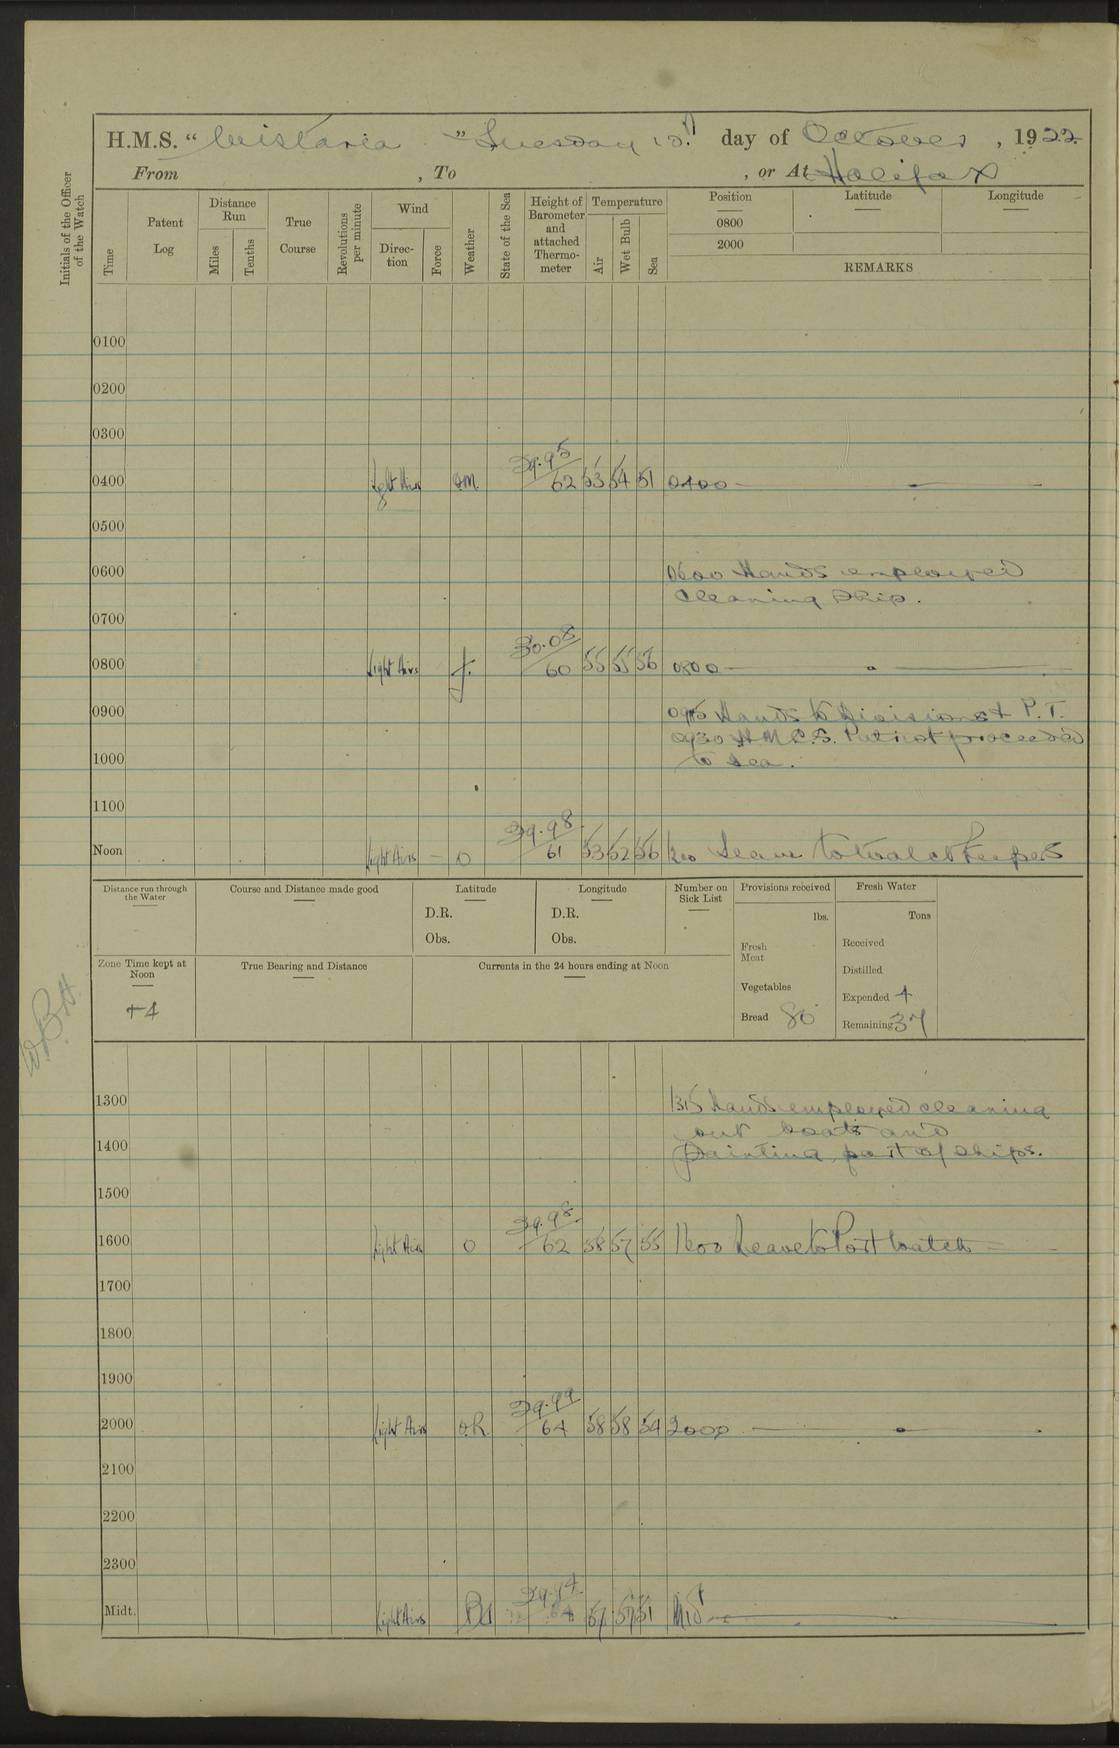 H.M.S. “ Wistaria ” Tuesday day of October , 1922
From , To , or At Halifax
Initials of the Officer of the Watch
Time
Patent Log
Distance Run
Miles
Tenths
True Course
Revolutions per minute
Wind
Direc-tion
Force
Weather
State of the Sea
Height of Barometer and attached Thermo-meter
Temperature
Air
Wet Bulb
Sea
Position
0800
2000
Latitude
Longitude
REMARKS
0100
0200
0300
29.95
0400 Light Airs O.M. 62 53 54 51 0400
0500
0600 0600 Hands employed
cleaning Ship.
0700
30.08
0800 Light Airs f. 60 55 55 56 0800
0900 0915 Hands to Divisions & P.T.
0930 H.M.C.S. Patriot proceeded
1000 to sea.
1100
29.98
Noon Light Airs – O 61 53 52 56 1200 Leave to watchkeepers
Distance run through the Water
Course and Distance made good
Latitude
D.R.
Obs.
Longitude
D.R.
Obs.
Number on Sick List
Provisions received
lbs.
Fresh Meat
Vegetables
Bread 80
Fresh Water
Tons
Received
Distilled
Expended 4
Remaining 37
Zone Time kept at Noon
+4
True Bearing and Distance
Currents in the 24 hours ending at Noon
W.B.H.
1300 1315 Hands employed cleaning
out boats and
1400 painting part of ships.
1500
29.98
1600 Light Airs O 62 58 57 55 1600 Leave to Port Watch
1700
1800
1900
29.99
2000 Light Airs O.R. 64 58 58 54 2000
2100
2200
2300
29.94
Midt. Light Airs 64 57 57 51 Mid